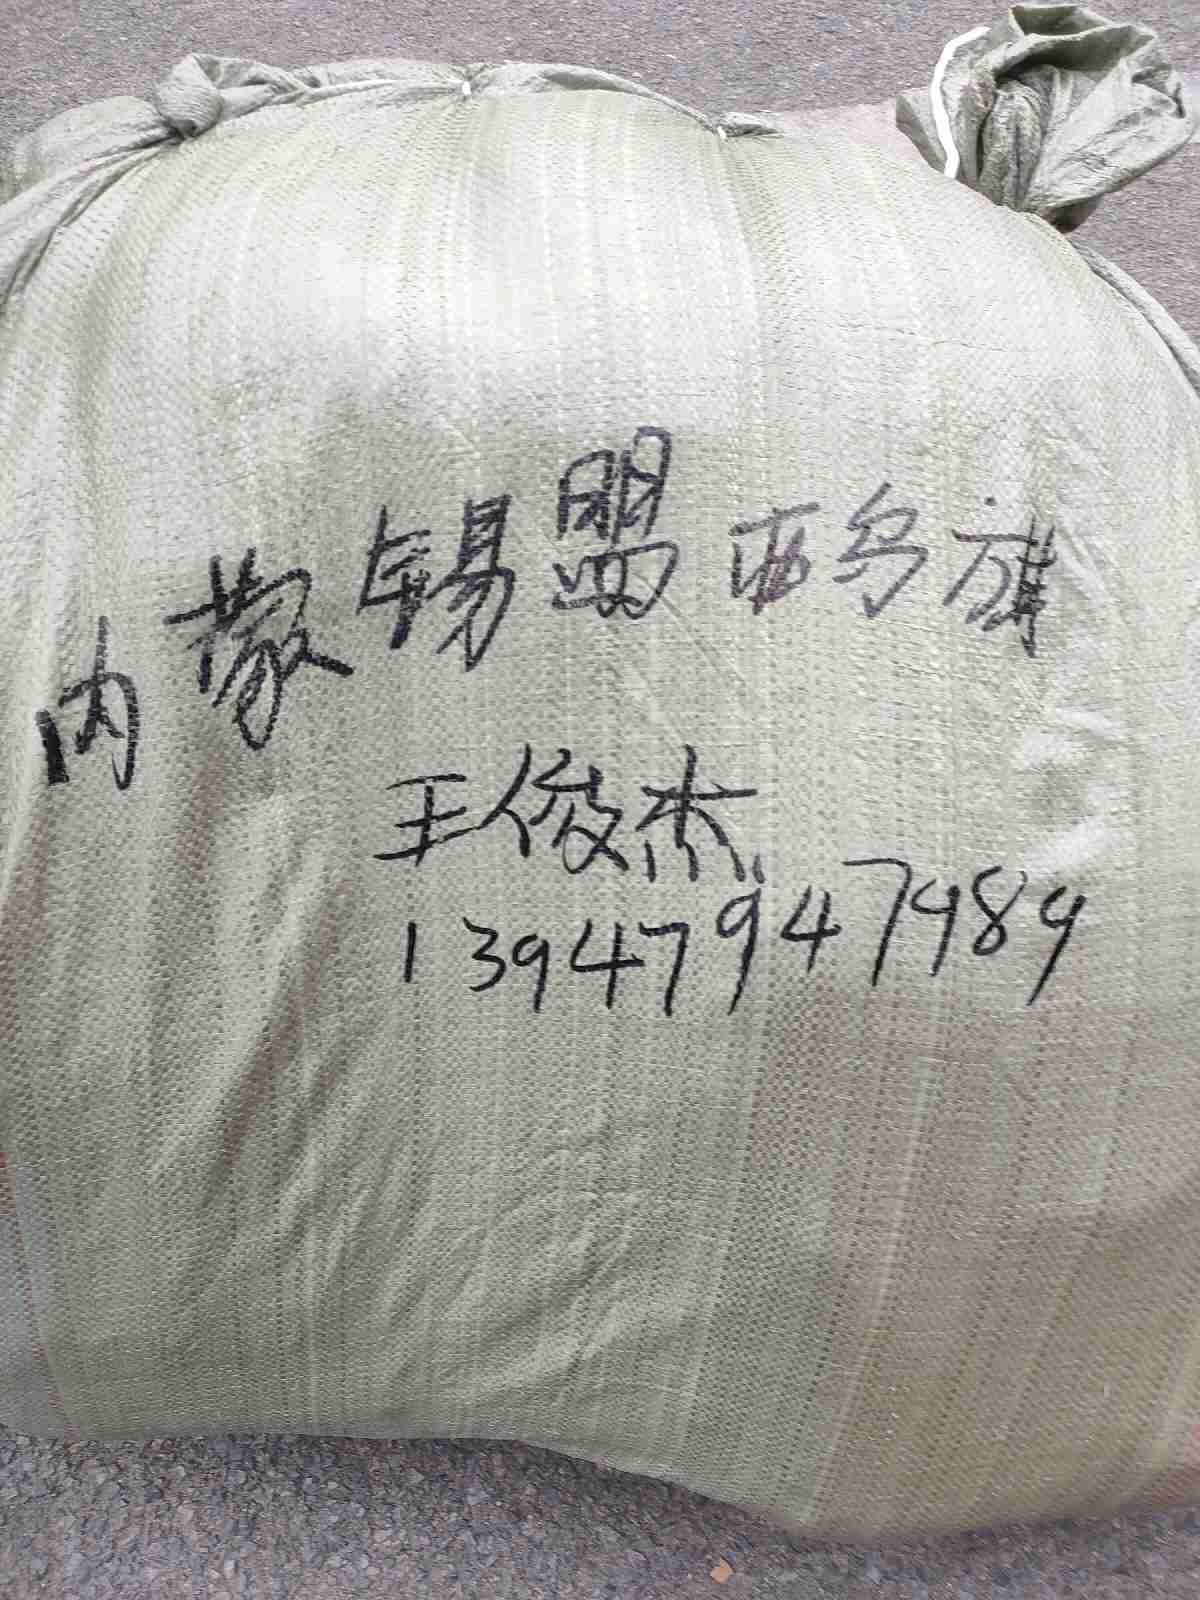 内蒙锡盟西乌旗
王俊杰
13947947989